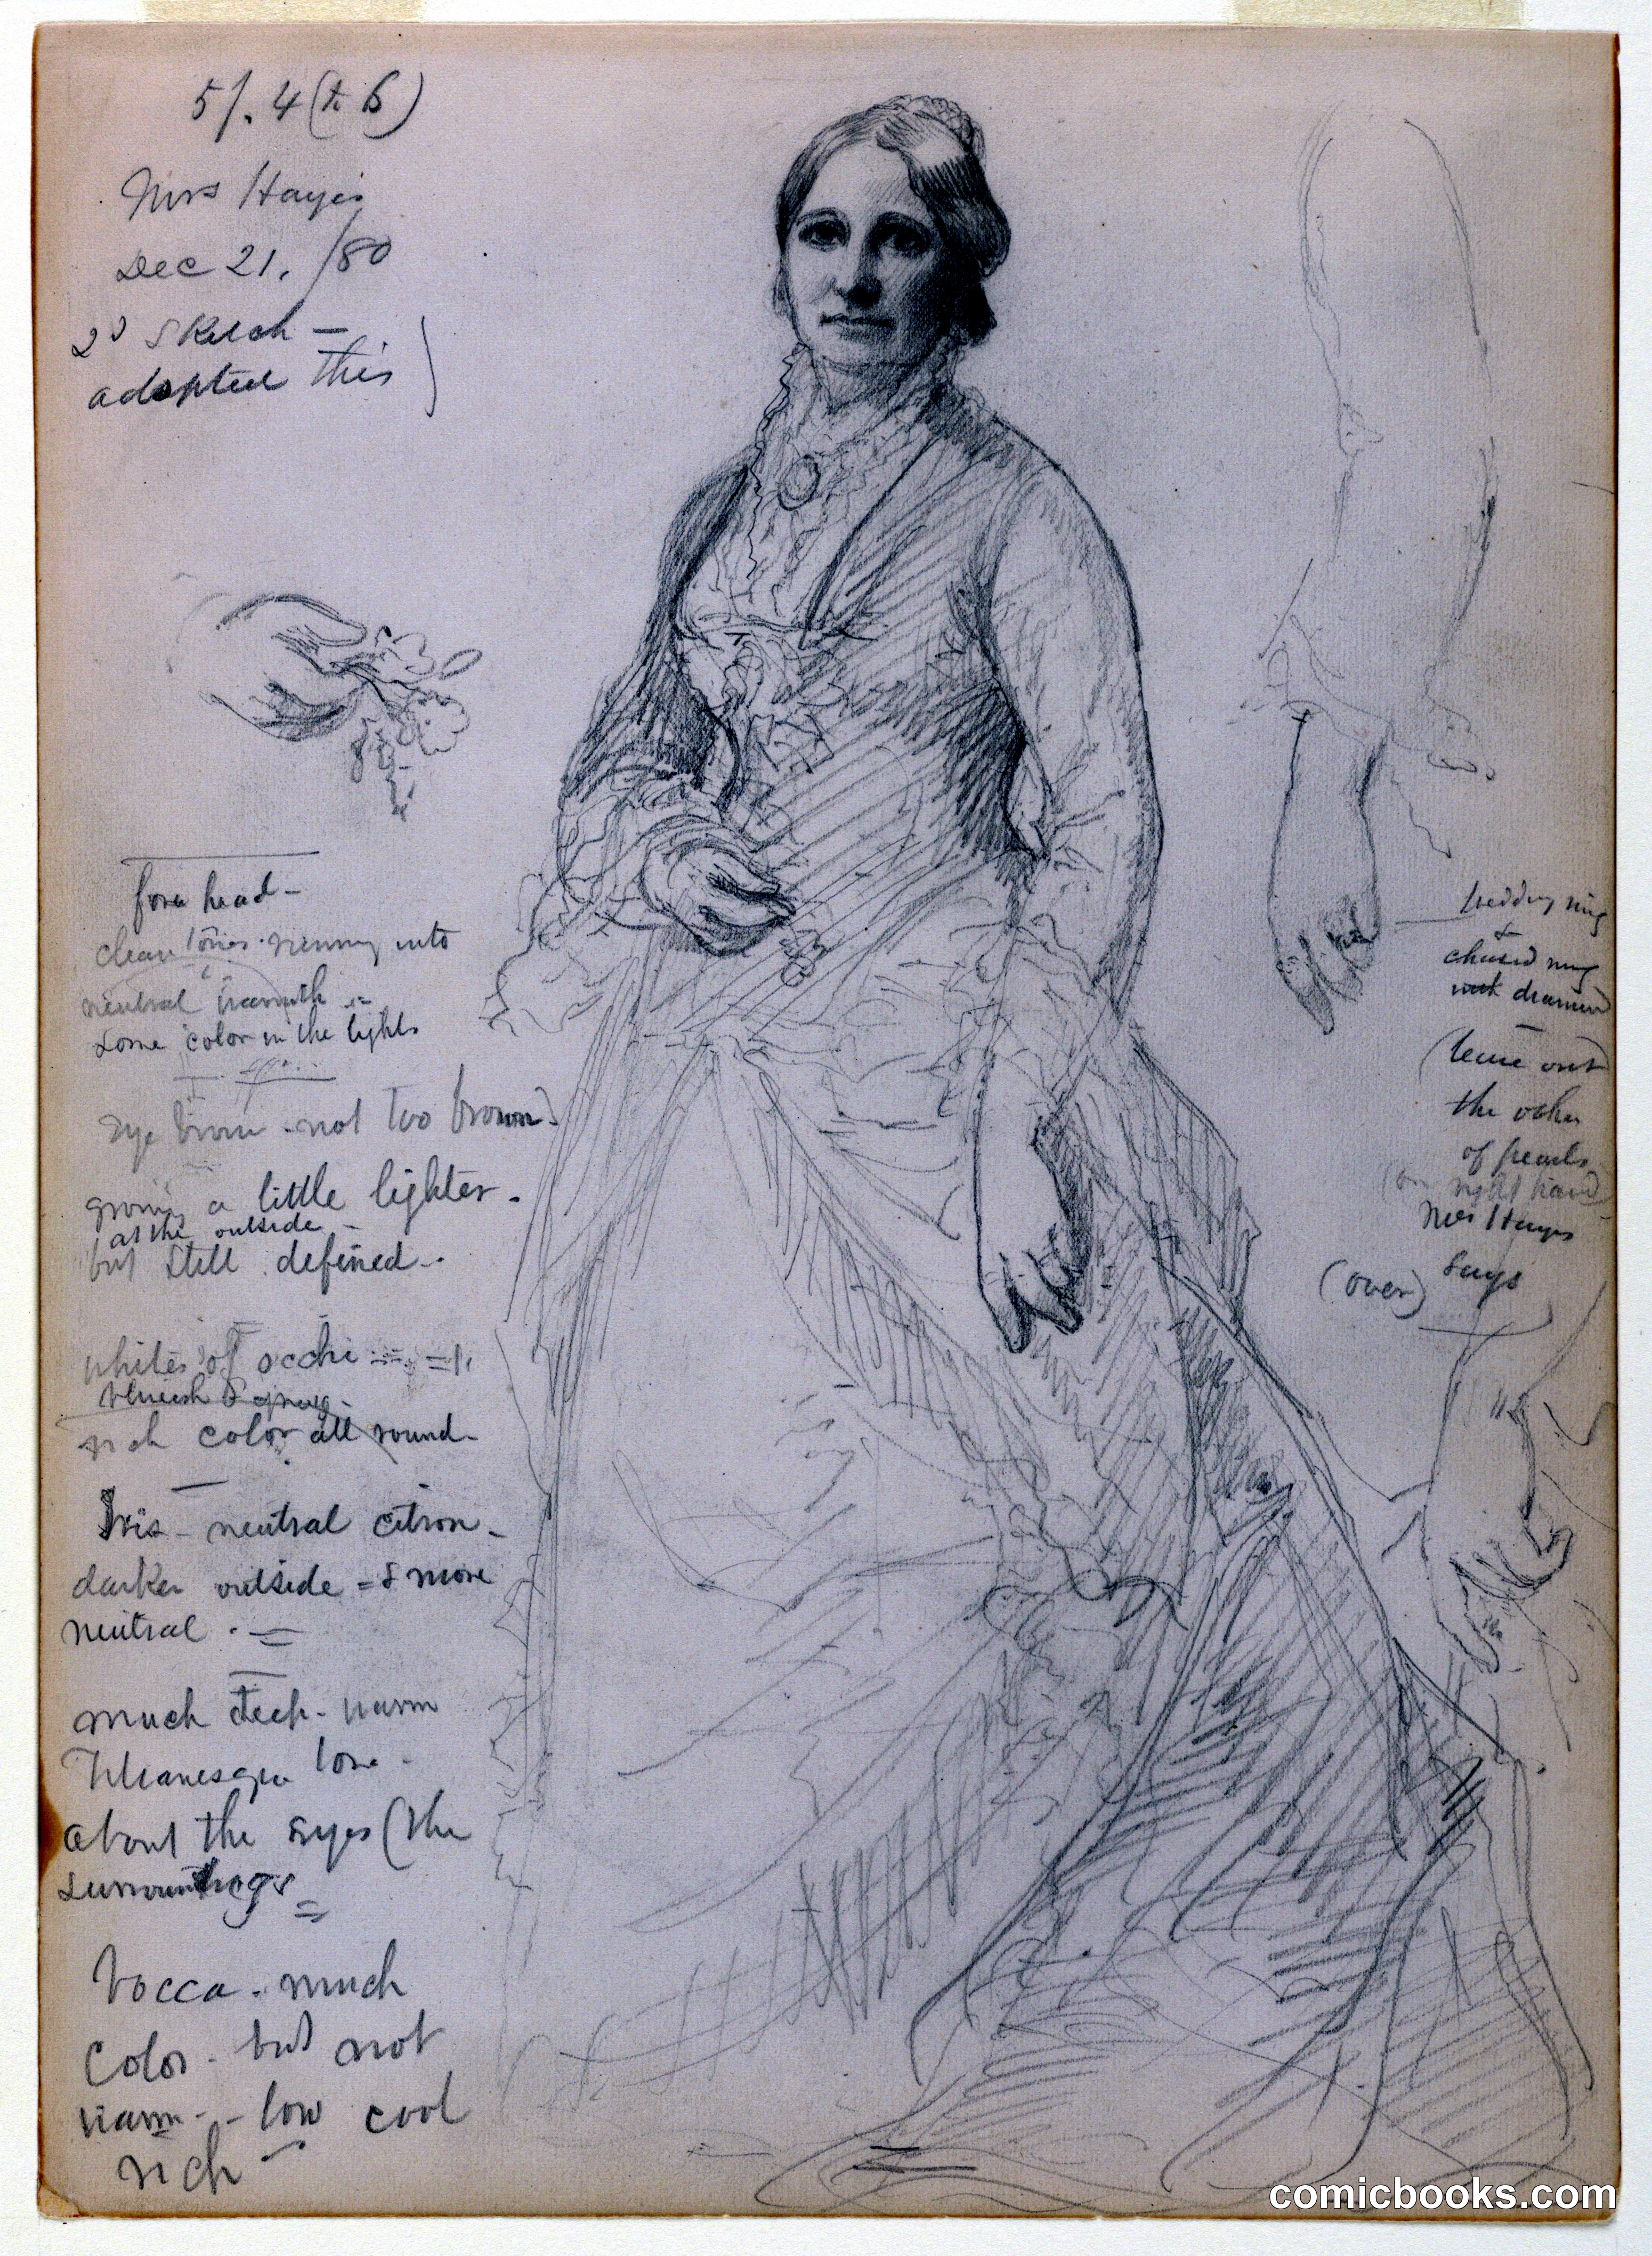 5/. 4 (to 6)
Mrs Hayes
Dec 21. /80
2d Sketch —
adopted this
fore head -
clear tones running into
neutral warmth =
some color in the lights
eye brow - not too brown.
growing a little lighter -
at the outside -
but still defined -
whites of occhi
blueish & gray -
rich color all round -
Iris - neutral citron -
darker outside = & more
neutral . =
much deep - warm
Titianesque tone -
about the eyes (the
surroundings =
bocca - much
color - but not
warm - - low cool
rich -
wedding ring
&
chased ring
not drawn
(leave out
the other
of pearls
(on right hand)
Mrs Hayes
says
(over)
comicbooks.com